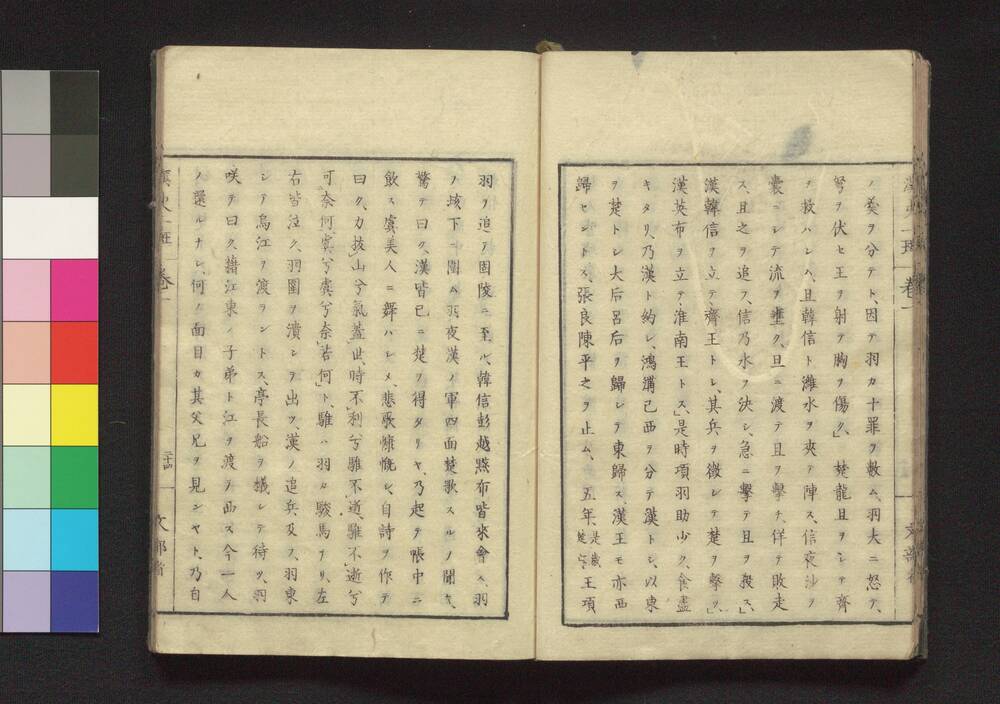 ノ羮ヲ分テト、因テ羽カ十罪ヲ數ム、羽大ニ怒テ、
弩ヲ伏セ王ヲ射テ胸ヲ傷ク」楚龍且ヲシテ齊
ヲ救ハシム、且韓信ト濰水ヲ夾テ陣ス、信夜沙ヲ
囊ニシテ流ヲ壅ク、旦ニ渡テ且ヲ擊チ、佯テ敗走
ス、且之ヲ追フ、信乃水ヲ決シ、急ニ擊テ且ヲ殺ス」
漢韓信ヲ立テ、齊王トシ、其兵ヲ徵シテ楚ヲ擊ツ」
漢英布ヲ立テ、淮南王トス」是時項羽助少ク、食盡
キタリ、乃漢ト約シ、鴻溝已西ヲ分テ漢トシ、以東
ヲ楚トシ大后呂后ヲ歸シテ東歸ス、漢王モ亦西
歸セントス、張良陳平之ヲ止ム、五年、是歲楚亡王項
羽ヲ追テ固陵ニ至ル、韓信彭越黥布皆來會ス、羽
ヲ垓下ニ圍ム、羽夜漢ノ軍四面楚歌スルヲ聞キ、
驚テ曰ク、漢皆已ニ楚ヲ得タリヤ、乃起テ帳中ニ
飮ス、虞美人ニ舞ハシメ、悲歌慷慨シ、自詩ヲ作テ
曰ク、力拔」山兮氣蓋」世、時不」利兮騅不」逝、騅不」逝兮
可」奈何、虞兮虞兮奈」若何」ト、騅ハ羽カ駿馬ナリ、左
右皆泣ク、羽圍ヲ潰シテ出ツ、漢ノ追兵及フ、羽東
シテ烏江ヲ渡ラントス、亭長船ヲ檥シテ待ツ、羽
咲テ曰ク、籍江東ノ子弟ト江ヲ渡テ西ス今一人
ノ還ルナシ、何ノ面目カ其父兄ヲ見ンヤト、乃自